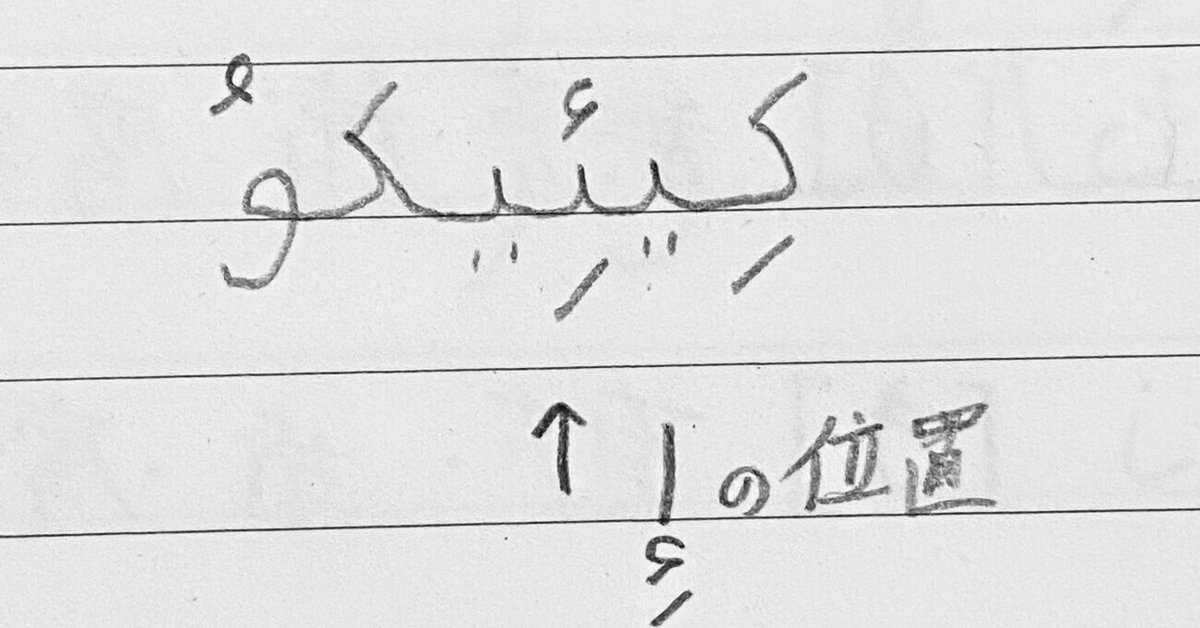 كِيئِيكوُ
↑ إِの位置